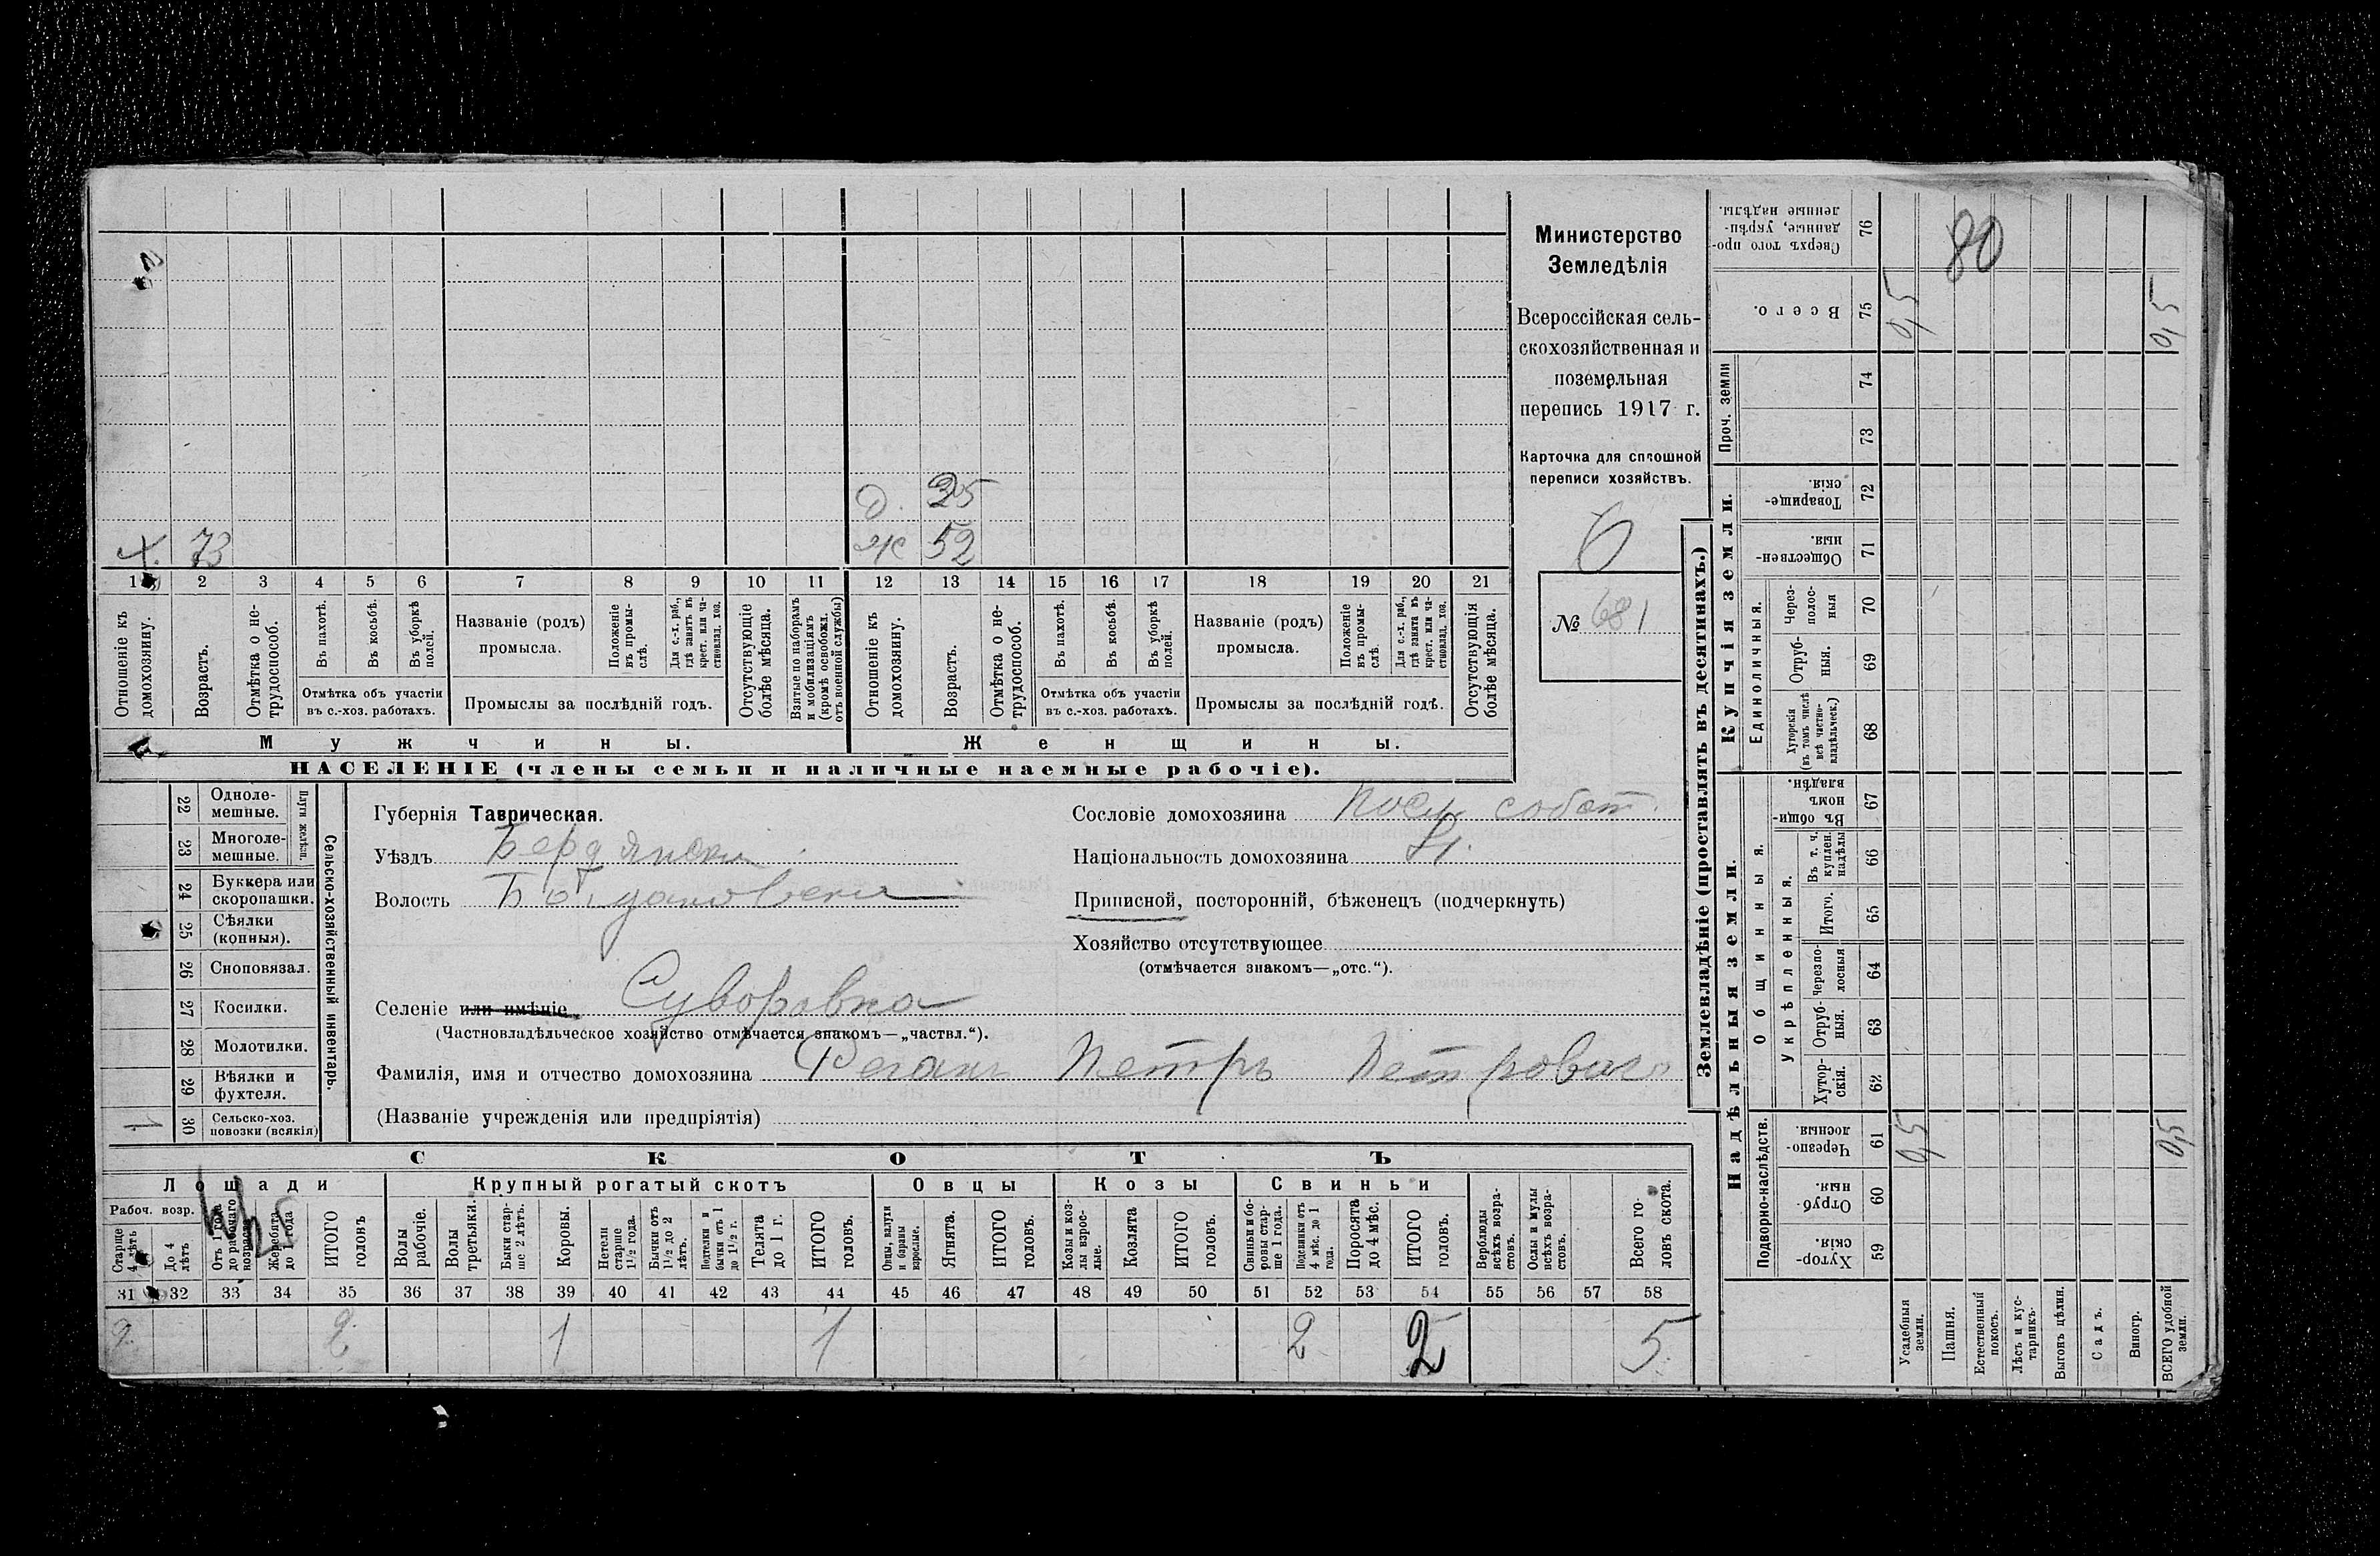 Министерство
Земледѣлія
Всероссійская сель-
скохозяйственная и
поземельная
перепись 1917 г.
Карточка для сплошной
переписи хозяйствъ.
6
№ 681
д. 25
х. 73
ж 52
1 2 3 4 5 6 7 8 9 10 11 12 13 14 15 16 17 18 19 20 21
Отношеніе къ домохозяину.
Возрастъ.
Отмѣтка о не-трудоспособ.
Въ пахотѣ.
Въ косьбѣ.
Въ уборкѣ полей.
Отмѣтка объ участіи въ с.-хоз. работахъ.
Названіе (родъ) промысла.
Положеніе въ промы-слѣ.
Для с.-х. раб., гдѣ занятъ въ крест. или ча-стновлад. хоз.
Промыслы за послѣдній годъ.
Отсутствующіе болѣе мѣсяца.
Взятые по наборамъ и мобилизаціямъ (кромѣ освобожд. отъ военной службы)
Отношеніе къ домохозяину.
Возрастъ.
Отмѣтка о не-трудоспособ.
Въ пахотѣ.
Въ косьбѣ.
Въ уборкѣ полей.
Отмѣтка объ участіи въ с.-хоз. работахъ.
Названіе (родъ) промысла.
Положеніе въ промы-слѣ.
Для с.-х. раб., гдѣ занята въ крест. или ча-стновлад. хоз.
Промыслы за послѣдній годъ.
Отсутствующія болѣе мѣсяца.
Мужчины.
Женщины.
НАСЕЛЕНІЕ (члены семьи и наличные наемные рабочіе).
Сельско-хозяйственный инвентарь.
Плуги желѣзн.
22 Одноле-мешные.
23 Многоле-мешные.
24 Буккера или скоропашки.
25 Сѣялки (конныя).
26 Сноповязал.
27 Косилки.
28 Молотилки.
29 Вѣялки и фухтеля.
30 Сельско-хоз. повозки (всякія) 1
Губернія Таврическая.
Уѣздъ Бердянски
Волость Богдановски
Селеніе или имѣніе Суворовка
(Частновладѣльческое хозяйство отмѣчается знакомъ—„частвл.“).
Фамилія, имя и отчество домохозяина Петръ Петрович
(Названіе учрежденія или предпріятія)
Сословіе домохозяина Посел собст.
Національность домохозяина
Приписной, посторонній, бѣженецъ (подчеркнуть)
Хозяйство отсутствующее
(отмѣчается знакомъ—„отс.“).
СКОТЪ
Лошади
Крупный рогатый скотъ
Овцы
Козы
Свиньи
Рабоч. возр.
Старше 4 лѣтъ
До 4 лѣтъ
Отъ 1 года до рабочаго возраста
Жеребята до 1 года
ИТОГО головъ
Волы рабочіе.
Волы третьяки.
Быки стар-ше 2 лѣтъ.
Коровы.
Нетели старше 1½ года.
Бычки отъ 1½ до 2 лѣтъ.
Подтелки и бычки отъ 1 до 1½ г.
Телята до 1 г.
ИТОГО головъ.
Овцы, валухи и бараны взрослые.
Ягнята.
ИТОГО головъ.
Козы и коз-лы взрос-лые.
Козлята
ИТОГО головъ.
Свинки и бо-ровы стар-ше 1 года.
Подсвинки отъ 4 мѣс. до 1 года.
Поросята до 4 мѣс.
ИТОГО головъ.
Верблюды всѣхъ возра-стовъ.
Ослы и мулы всѣхъ возра-стовъ.
Всего го-ловъ скота.
31 32 33 34 35 36 37 38 39 40 41 42 43 44 45 46 47 48 49 50 51 52 53 54 55 56 57 58
2 2 1 1 2 2 5
Землевладѣніе (проставлять въ десятинахъ.)
Надѣльныя земли.
Купчія земли.
Проч. земли
Подворно-наслѣдств.
Общинныя.
Укрѣпленныя.
Единоличныя.
Сверхъ того про-данные, укрѣп-ленные надѣлы. 76
Всего. 75
74
73
Товарище-скія. 72
Обществен-ныя. 71
Через-полос-ныя 70
Отруб-ныя. 69
Хуторскія (въ томъ числѣ всѣ частно-владѣльческ.) 68
Въ общин-номъ владѣн. 67
Въ т. ч. куплен. надѣлы 66
Итого. 65
Черезпо-лосныя 64
Отруб-ныя. 63
Хутор-скія. 62
Черезпо-лосныя. 61
Отруб-ныя. 60
Хутор-скія. 59
80
0,5 0,5
0,5 0,5
Усадебныя земли.
Пашня.
Естественный покосъ.
Лѣсъ и кус-тарникъ.
Выгонъ цѣлин.
Садъ.
Виногр.
ВСЕГО удобной земли.